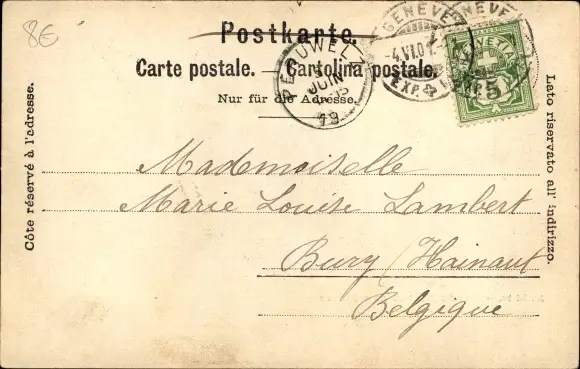 8€
Postkarte.
Carte postale. Cartolina postale.
Nur für die Adresse.
Côte réservé à l'adresse.
Lato riservato all' indirizzo.
GENÈVE
-4.VI.0
EXP.
PERUWELZ
JUIN
19
HELVETIA
5
Mademoiselle
Marie Louise Lambert
Bury (Hainaut
Belgique